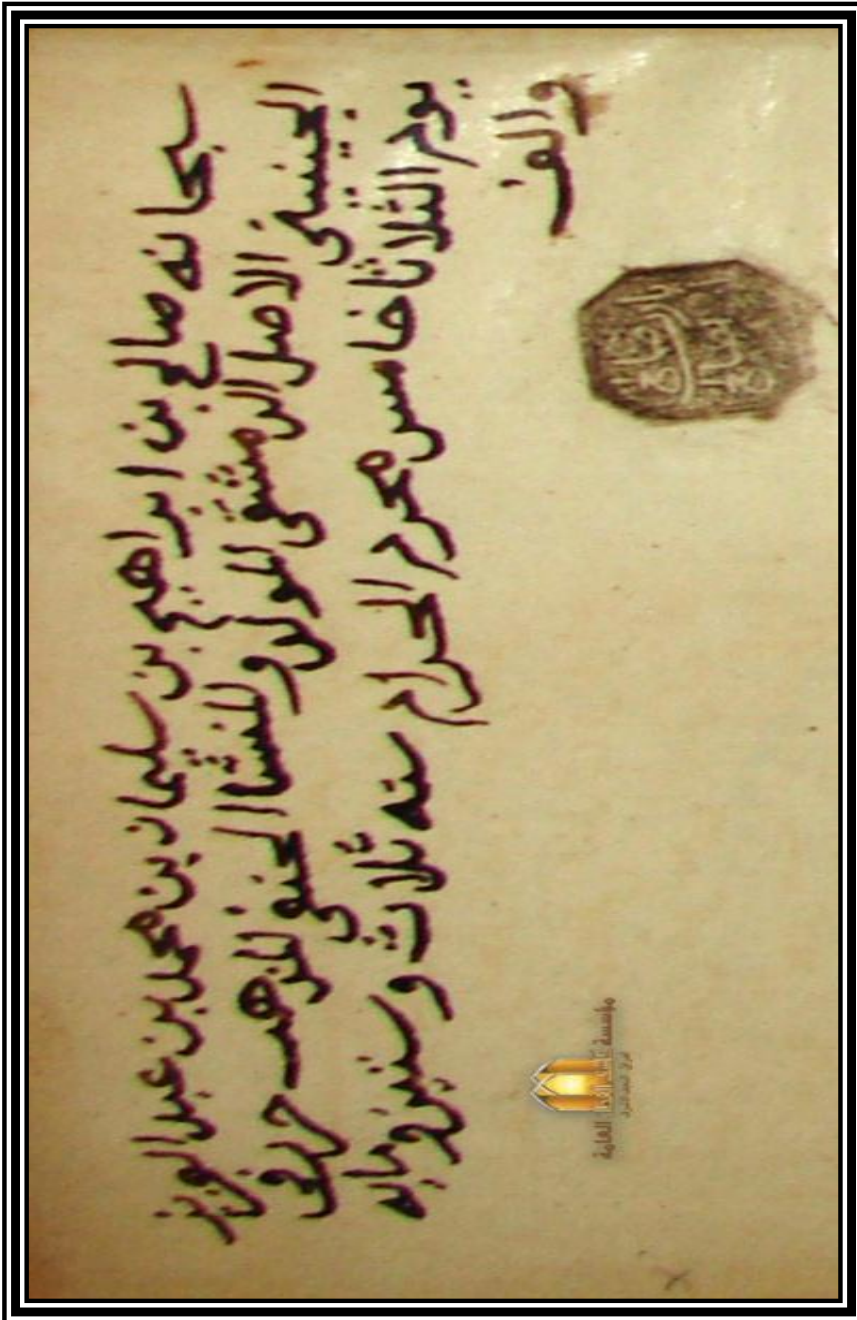 سبحانه صالح بن ابراهيم بن سليمان بن محمد بن عبد العزيز
الجينيني الاصل الدمشقي المولد والمنشا الحنفي المذهب حرر في
يوم الثلاثا خامس محرم الحرام سنه ثلاث وستين ومايه
والف
مؤسسة العامة